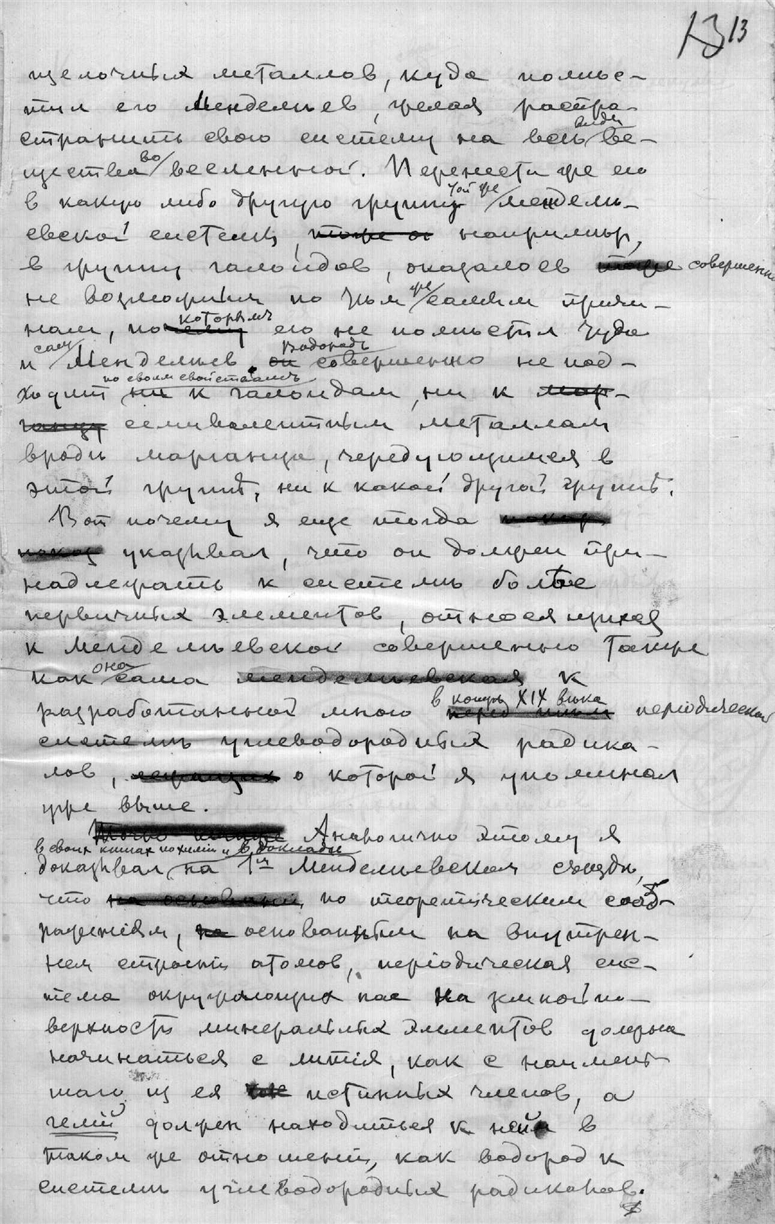 13 13
щелочных металловъ, куда помѣс-
тил его Менделѣев, желая распро-
странить свою систему на всѣ виды ве-
щества во вселенной. Перенести же его
в какую либо другую группу той же Мендель-
евской системы, например,
в группу галоидов, оказалось совершенно
не возможным по тѣм же самым причи-
нам, по которымъ его не помѣстил туда
и сам Менделѣев. Водородъ совершенно не под-
ходит по своим свойствамъ ни к галоидам, ни к
семивалентным металлам
вродѣ марганца, чередующимся в
этой группѣ, ни к какой другой группѣ.
Вот почему я еще тогда
указывал, что он должен при-
надлежать к системѣ болѣе
первичных элементов, относящихся
к Менделѣевской совершенно также
как она сама к
разработанной мною в концѣ XIX вѣка періодической
системѣ углеводородных радика-
лов, о которой я упоминал
уже выше.
Аналогично этому я
доказывал в своих книгах по химіи и в докладѣ на 1м Менделѣевском съѣздѣ,
что по теоретическим сооб-
раженіям, основанным на внутрен-
нем строеніи атомов, періодическая сис-
тема окружающих нас на земной по-
верхности минеральных элементов должна
начинаться с литія, как с наимень-
шаго из ея истинных членов, а
гелій должен находиться к ней в
таком же отношеніи, как водород к
системѣ углеводородных радикалов.